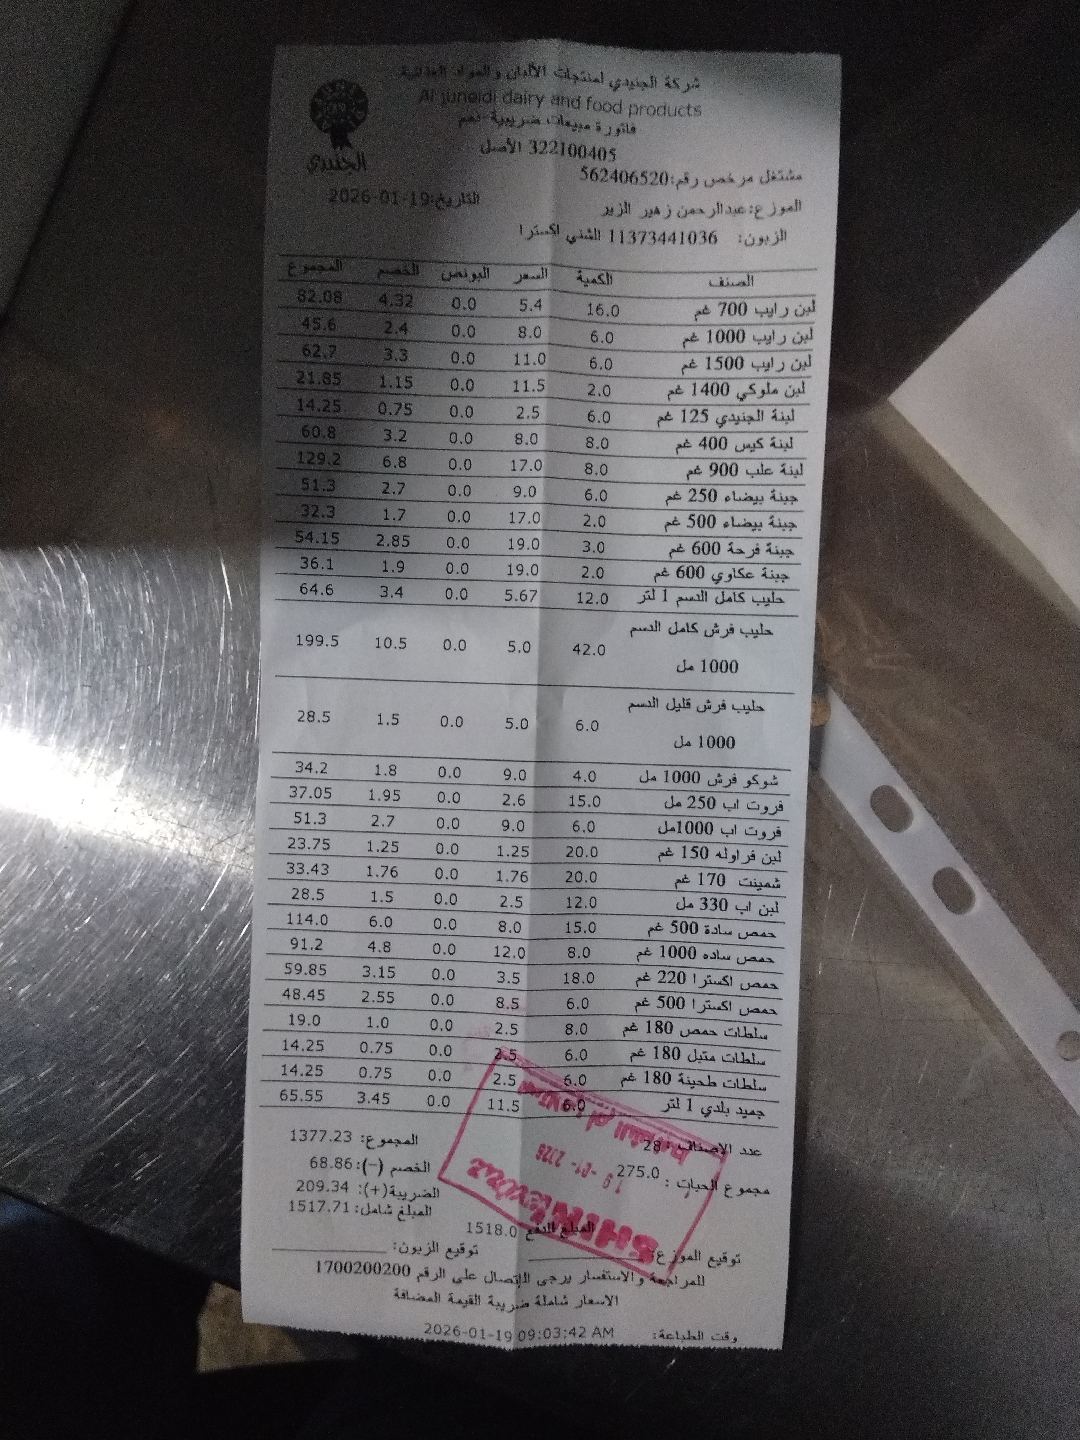 شركة الجنيدي لمنتجات الألبان والمواد الغذائية
Al juneidi dairy and food products
فاتورة مبيعات ضريبية-نعم
322100405 الأصل
مشتغل مرخص رقم:562406520
الموزع:عبدالرحمن زهير الزير
التاريخ:2026-01-19
الزبون: 11373441036 الشني اكسترا
الجنيدي
الصنف الكمية السعر البونص الخصم المجموع
لبن رايب 700 غم 16.0 5.4 0.0 4.32 82.08
لبن رايب 1000 غم 6.0 8.0 0.0 2.4 45.6
لبن رايب 1500 غم 6.0 11.0 0.0 3.3 62.7
لبن ملوكي 1400 غم 2.0 11.5 0.0 1.15 21.85
لبنة الجنيدي 125 غم 6.0 2.5 0.0 0.75 14.25
لبنة كيس 400 غم 8.0 8.0 0.0 3.2 60.8
لبنة علب 900 غم 8.0 17.0 0.0 6.8 129.2
جبنة بيضاء 250 غم 6.0 9.0 0.0 2.7 51.3
جبنة بيضاء 500 غم 2.0 17.0 0.0 1.7 32.3
جبنة فرحة 600 غم 3.0 19.0 0.0 2.85 54.15
جبنة عكاوي 600 غم 2.0 19.0 0.0 1.9 36.1
حليب كامل الدسم 1 لتر 12.0 5.67 0.0 3.4 64.6
حليب فرش كامل الدسم
1000 مل 42.0 5.0 0.0 10.5 199.5
حليب فرش قليل الدسم
1000 مل 6.0 5.0 0.0 1.5 28.5
شوكو فرش 1000 مل 4.0 9.0 0.0 1.8 34.2
فروت اب 250 مل 15.0 2.6 0.0 1.95 37.05
فروت اب 1000مل 6.0 9.0 0.0 2.7 51.3
لبن فراوله 150 غم 20.0 1.25 0.0 1.25 23.75
شمينت 170 غم 20.0 1.76 0.0 1.76 33.43
لبن اب 330 مل 12.0 2.5 0.0 1.5 28.5
حمص سادة 500 غم 15.0 8.0 0.0 6.0 114.0
حمص ساده 1000 غم 8.0 12.0 0.0 4.8 91.2
حمص اكسترا 220 غم 18.0 3.5 0.0 3.15 59.85
حمص اكسترا 500 غم 6.0 8.5 0.0 2.55 48.45
سلطات حمص 180 غم 8.0 2.5 0.0 1.0 19.0
سلطات متبل 180 غم 6.0 2.5 0.0 0.75 14.25
سلطات طحينة 180 غم 6.0 2.5 0.0 0.75 14.25
جميد بلدي 1 لتر 6.0 11.5 0.0 3.45 65.55
عدد الاصناف : 28
المجموع: 1377.23
مجموع الحبات : 275.0
الخصم (-): 68.86
الضريبة(+): 209.34
المبلغ شامل: 1517.71
المبلغ للدفع 1518.0
توقيع الموزع:
توقيع الزبون:
للمراجعة والاستفسار يرجى الإتصال على الرقم 1700200200
الاسعار شاملة ضريبة القيمة المضافة
وقت الطباعة: 2026-01-19 09:03:42 AM
19-01-2026